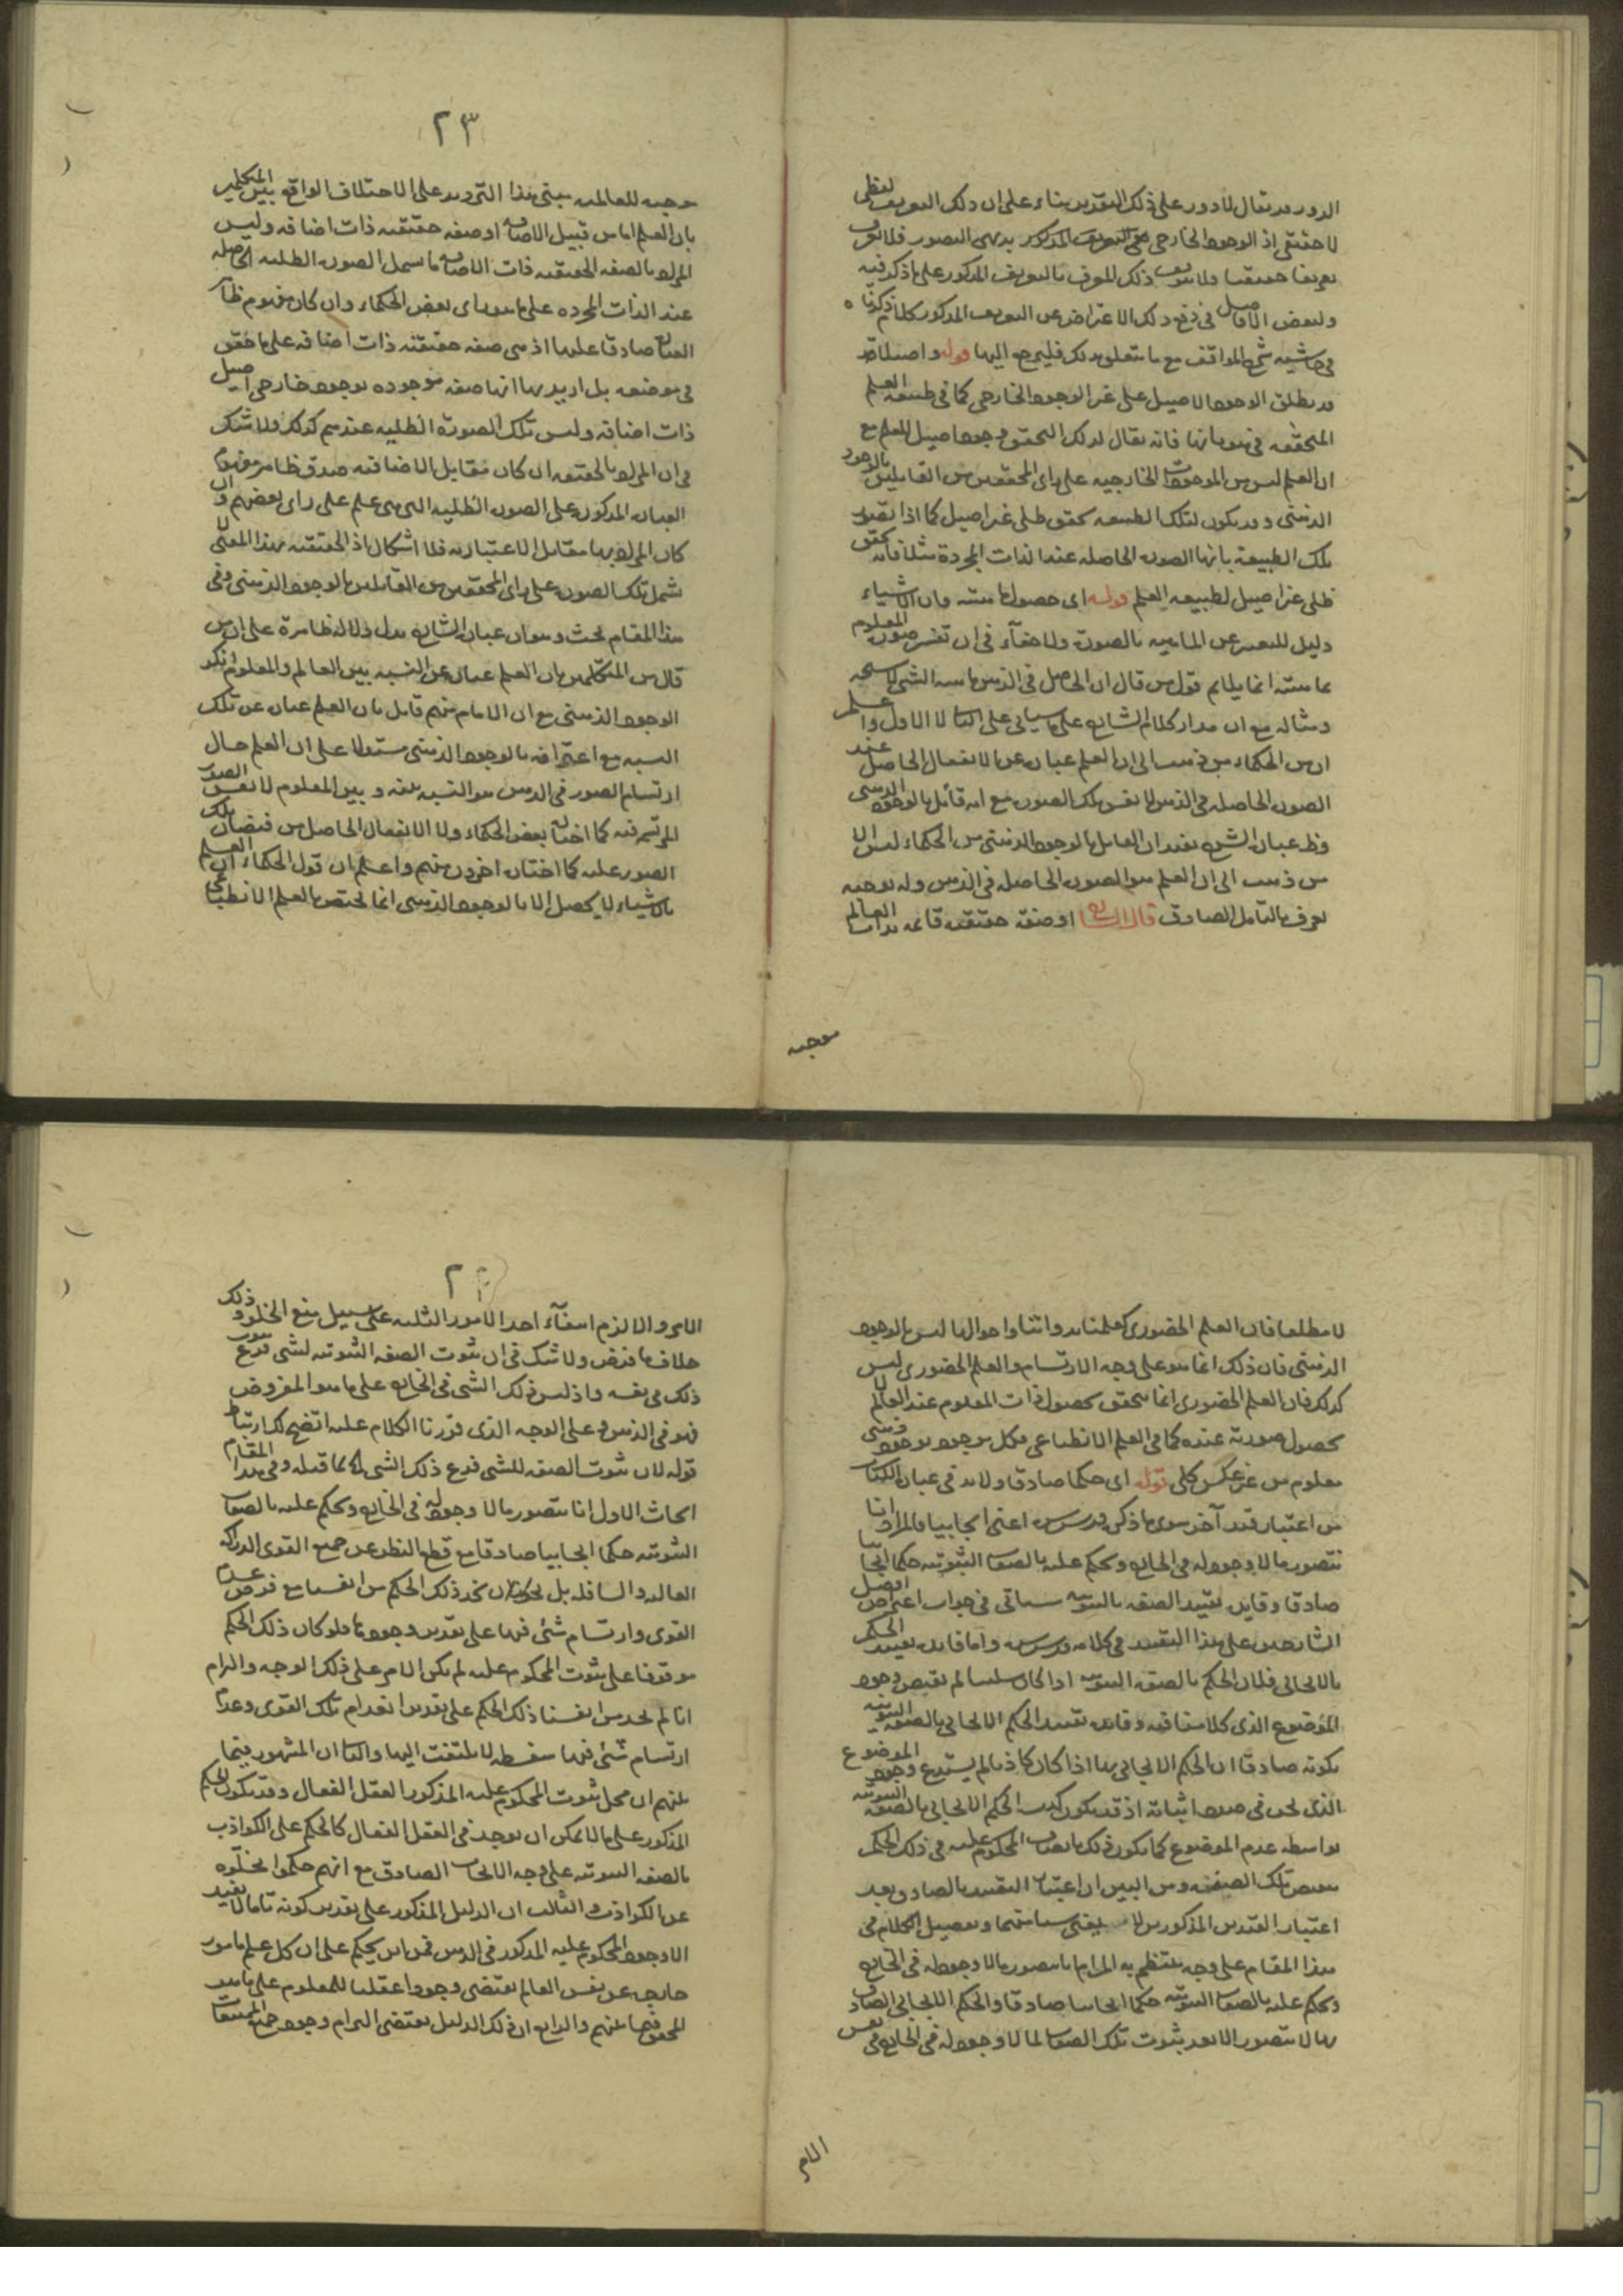 الدور وقد يقال لا دور على ذلك التقدير بناء على ان ذلك التعريف لفظى
لا حقيقى اذ الوجود الخارجى على التعريف المذكور بديهى التصور فلا
تعريفا حقيقيا ولا ذلك المعرف بالتعريف المذكور على ما ذكر فيه
ولبعض الافاضل فى دفع ذلك الاعتراض عن التعريف المذكور كلام ذكرناه
فى حاشية شرح المواقف مع ما يتعلق بذلك فليرجع اليها قوله واصيلا قد
قد يطلق الوجود الاصيل على غير الوجود الخارجى كما فى طبيعة العلم
المتحققة فانه يقال لذلك التحقق وجود اصيل للعلم مع
ان العلم ليس من الموجودات الخارجية على راى المحققين من القائلين بالوجود
الذهنى وقد يكون لتلك الطبيعة تحقق ظلى غير اصيل كما اذا تصور
تلك الطبيعة بانها الصورة الحاصلة عند الذات المجردة مثلا فانه تحقق
ظلى غير اصيل لطبيعة العلم قوله اى حصول ماهيته فان الاشياء
دليل للتعبير عن الماهية بالصورة ولا خفاء فى ان تفسير صورة المعلوم
بماهيته انما يلايم قول من قال ان الحاصل فى الذهن ماهية الشئ لا شبحه
ومثاله مع ان مدار كلام الشارح على ما سياتى على الثانى لا الاول واعلم
ان من الحكماء من ذهب الى ان العلم عبارة عن الانفعال الحاصل عند
الصورة الحاصلة فى الذهن لا نفس تلك الصورة مع انه قائل بالوجود الذهنى
وظ عبارة الشرح يفيد ان القائل بالوجود الذهنى من الحكماء ليس الا
من ذهب الى ان العلم هو الصورة الحاصلة فى الذهن وله توجيه
يعرف بالتامل الصادق قال الشارح او صفة حقيقية قائمة بذات العالم
موجبة
٢٣
موجبة للعالمية مبنى هذا الترديد على الاختلاف الواقع بين المتكلمين
بان العلم اما من قبيل الاضافة او صفة حقيقية ذات اضافة وليس
المراد بالصفة الحقيقية ذات الاضافة ما يشمل الصورة الظلية الحاصلة
عند الذات المجردة على ما هو راى بعض الحكماء وان كان مفهوم ظاهر
العبارة صادقا عليها اذ هى صفة حقيقية ذات اضافة على ما حقق
فى موضعه بل اريد بها انها صفة موجودة بوجود خارجى اصيل
ذات اضافة وليس تلك الصورة الظلية عندهم كذلك ولا شك
فى ان المراد بالحقيقة ان كان مقابل الاضافية صدق ظاهر مفهوم
العبارة المذكورة على الصورة الظلية التى هى علم على راى بعضهم وان
كان المراد بها مقابل الاعتبارية فلا اشكال اذ الحقيقية بهذا المعنى لا
تشمل تلك الصورة على راى المحققين من القائلين بالوجود الذهنى وفى
هذا المقام بحث وهو ان عبارة الشارح يدل دلالة ظاهرة على ان من
قال من المتكلمين بان العلم عبارة عن النسبة بين العالم والمعلوم انكر
الوجود الذهنى مع ان الامام منهم قائل بان العلم عبارة عن تلك
النسبة مع اعترافه بالوجود الذهنى مستدلا على ان العلم حال
ارتسام الصور فى الذهن هو النسبة بينه وبين المعلوم لا نفس الصور
المرتسمة فيه كما اختاره بعض الحكماء ولا الانفعال الحاصل من فيضان تلك
الصور عليه كما اختاره اخرون منهم واعلم ان قول الحكماء ان العلم
بالاشياء لا يحصل الا بالوجود الذهنى انما يختص بالعلم الانطباعى
لا مطلقا فان العلم الحضورى كعلمنا بذواتنا واحوالها ليس بالوجود
الذهنى فان ذلك انما هو على وجه الارتسام والعلم الحضورى ليس
كذلك فان العلم الحضورى انما يتحقق بحصول ذات المعلوم عند العالم لا
بحصول صورته عنده كما فى العلم الانطباعى فكل موجود بوجود ذهنى
معلوم من غير عكس كلى قوله اى حكما صادقا ولابد فى عبارة الكتاب
من اعتبار قيد آخر سوى ما ذكره قدس سره اعنى ايجابيا فالمراد انا
نتصور ما لا وجود له فى الخارج ونحكم عليه بالصفات الثبوتية حكما ايجابيا
صادقا وفائدة تقييد الصفة بالثبوتية سياتى فى جواب اعتراض افضل
الشارحين على هذا التقييد فى كلامه قدس سره واما فائدة تقييد الحكم
بالايجابى فلان الحكم بالصفة الثبوتية اذا كان سلبيا لم يقتض وجود
الموضوع الذى كلامنا فيه وفائدة تقييد الحكم الايجابى بالصفة الثبوتية
بكونه صادقا ان الحكم الايجابى بها اذا كان كاذبا لم يستدع وجود الموضوع
الذى نحن فى صدد اثباته اذ قد يكون كذب الحكم الايجابى بالصفة الثبوتية
بواسطة عدم الموضوع كما يكون ذلك باتصاف المحكوم عليه فى ذلك الحكم
بنقيض تلك الصفة ومن البين ان اعتبار التقييد بالصادق بعد
اعتبار القيدين المذكورين لا وتفصيل الكلام فى
هذا المقام على وجه ينتظم به المرام انا نتصور ما لا وجود له فى الخارج
ونحكم عليه بالصفات الثبوتية حكما ايجابيا صادقا والحكم الايجابى الصادق
بها لا يتصور الا بعد ثبوت تلك الصفات لما لا وجود له فى الخارج فى نفس
الامر
٢٤
الامر والا لزم انتفاء احد الامور الثلثة على سبيل منع الخلو وذلك
خلاف ما فرض ولا شك فى ان ثبوت الصفة الثبوتية لشئ فرع ثبوت
ذلك فى نفسه واذ ليس ذلك الشئ فى الخارج على ما هو المفروض
فهو فى الذهن وعلى الوجه الذى قررنا الكلام عليه اتضح لك ارتباط
قوله لان ثبوت الصفة للشئ فرع ذلك الشئ بما قبله وفى هذا المقام
ابحاث الاول انا نتصور ما لا وجود له فى الخارج ونحكم عليه بالصفات
الثبوتية حكما ايجابيا صادقا مع قطع النظر عن جميع القوى الدراكة
العالية والسافلة بل نجد ذلك الحكم من انفسنا مع فرض عدم
القوى وارتسام شئ فيها على تقدير وجودها فلو كان ذلك الحكم
موقوفا على ثبوت المحكوم عليه لم يكن الامر على ذلك الوجه والتزام
انا لم نجد من انفسنا ذلك الحكم على تقدير انعدام تلك القوى وعدم
ارتسام شئ فيها سفسطة لا يلتفت اليها والثانى ان المشهور فيما
بينهم ان محل ثبوت المحكوم عليه المذكور العقل الفعال وقد يكون الحكم
المذكور على ما لا يمكن ان يوجد فى العقل الفعال كالحكم على الكواذب
بالصفة الثبوتية على وجه الايجاب الصادق مع انهم حكموا بخلوه
عن الكواذب والثالث ان الدليل المذكور على تقدير كونه تاما لا يفيد
الا وجود المحكوم عليه المذكور فى الذهن فمن اين يحكم على ان كل علم بامور
خارجة عن نفس العالم يقتضى وجودا عقليا للمعلوم على ما هو
المحقق فيما بينهم والرابع ان ذلك الدليل يقتضى التزام وجود جميع الممتنعات